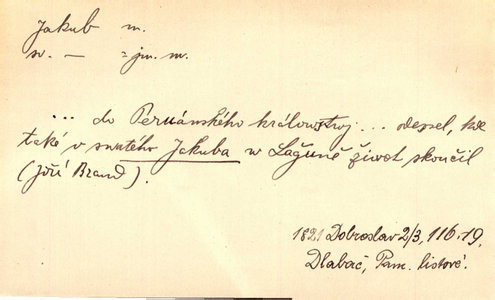 Jakub m.
sv. — = jm. m.
... do Peruánského králowstwj ... odessel, kde
také v swatého Jakuba w Laguně život skončil
(Jiří Brand).
1821 Dobroslav 2/3, 116.19.
Dlabač, Pam. listové.